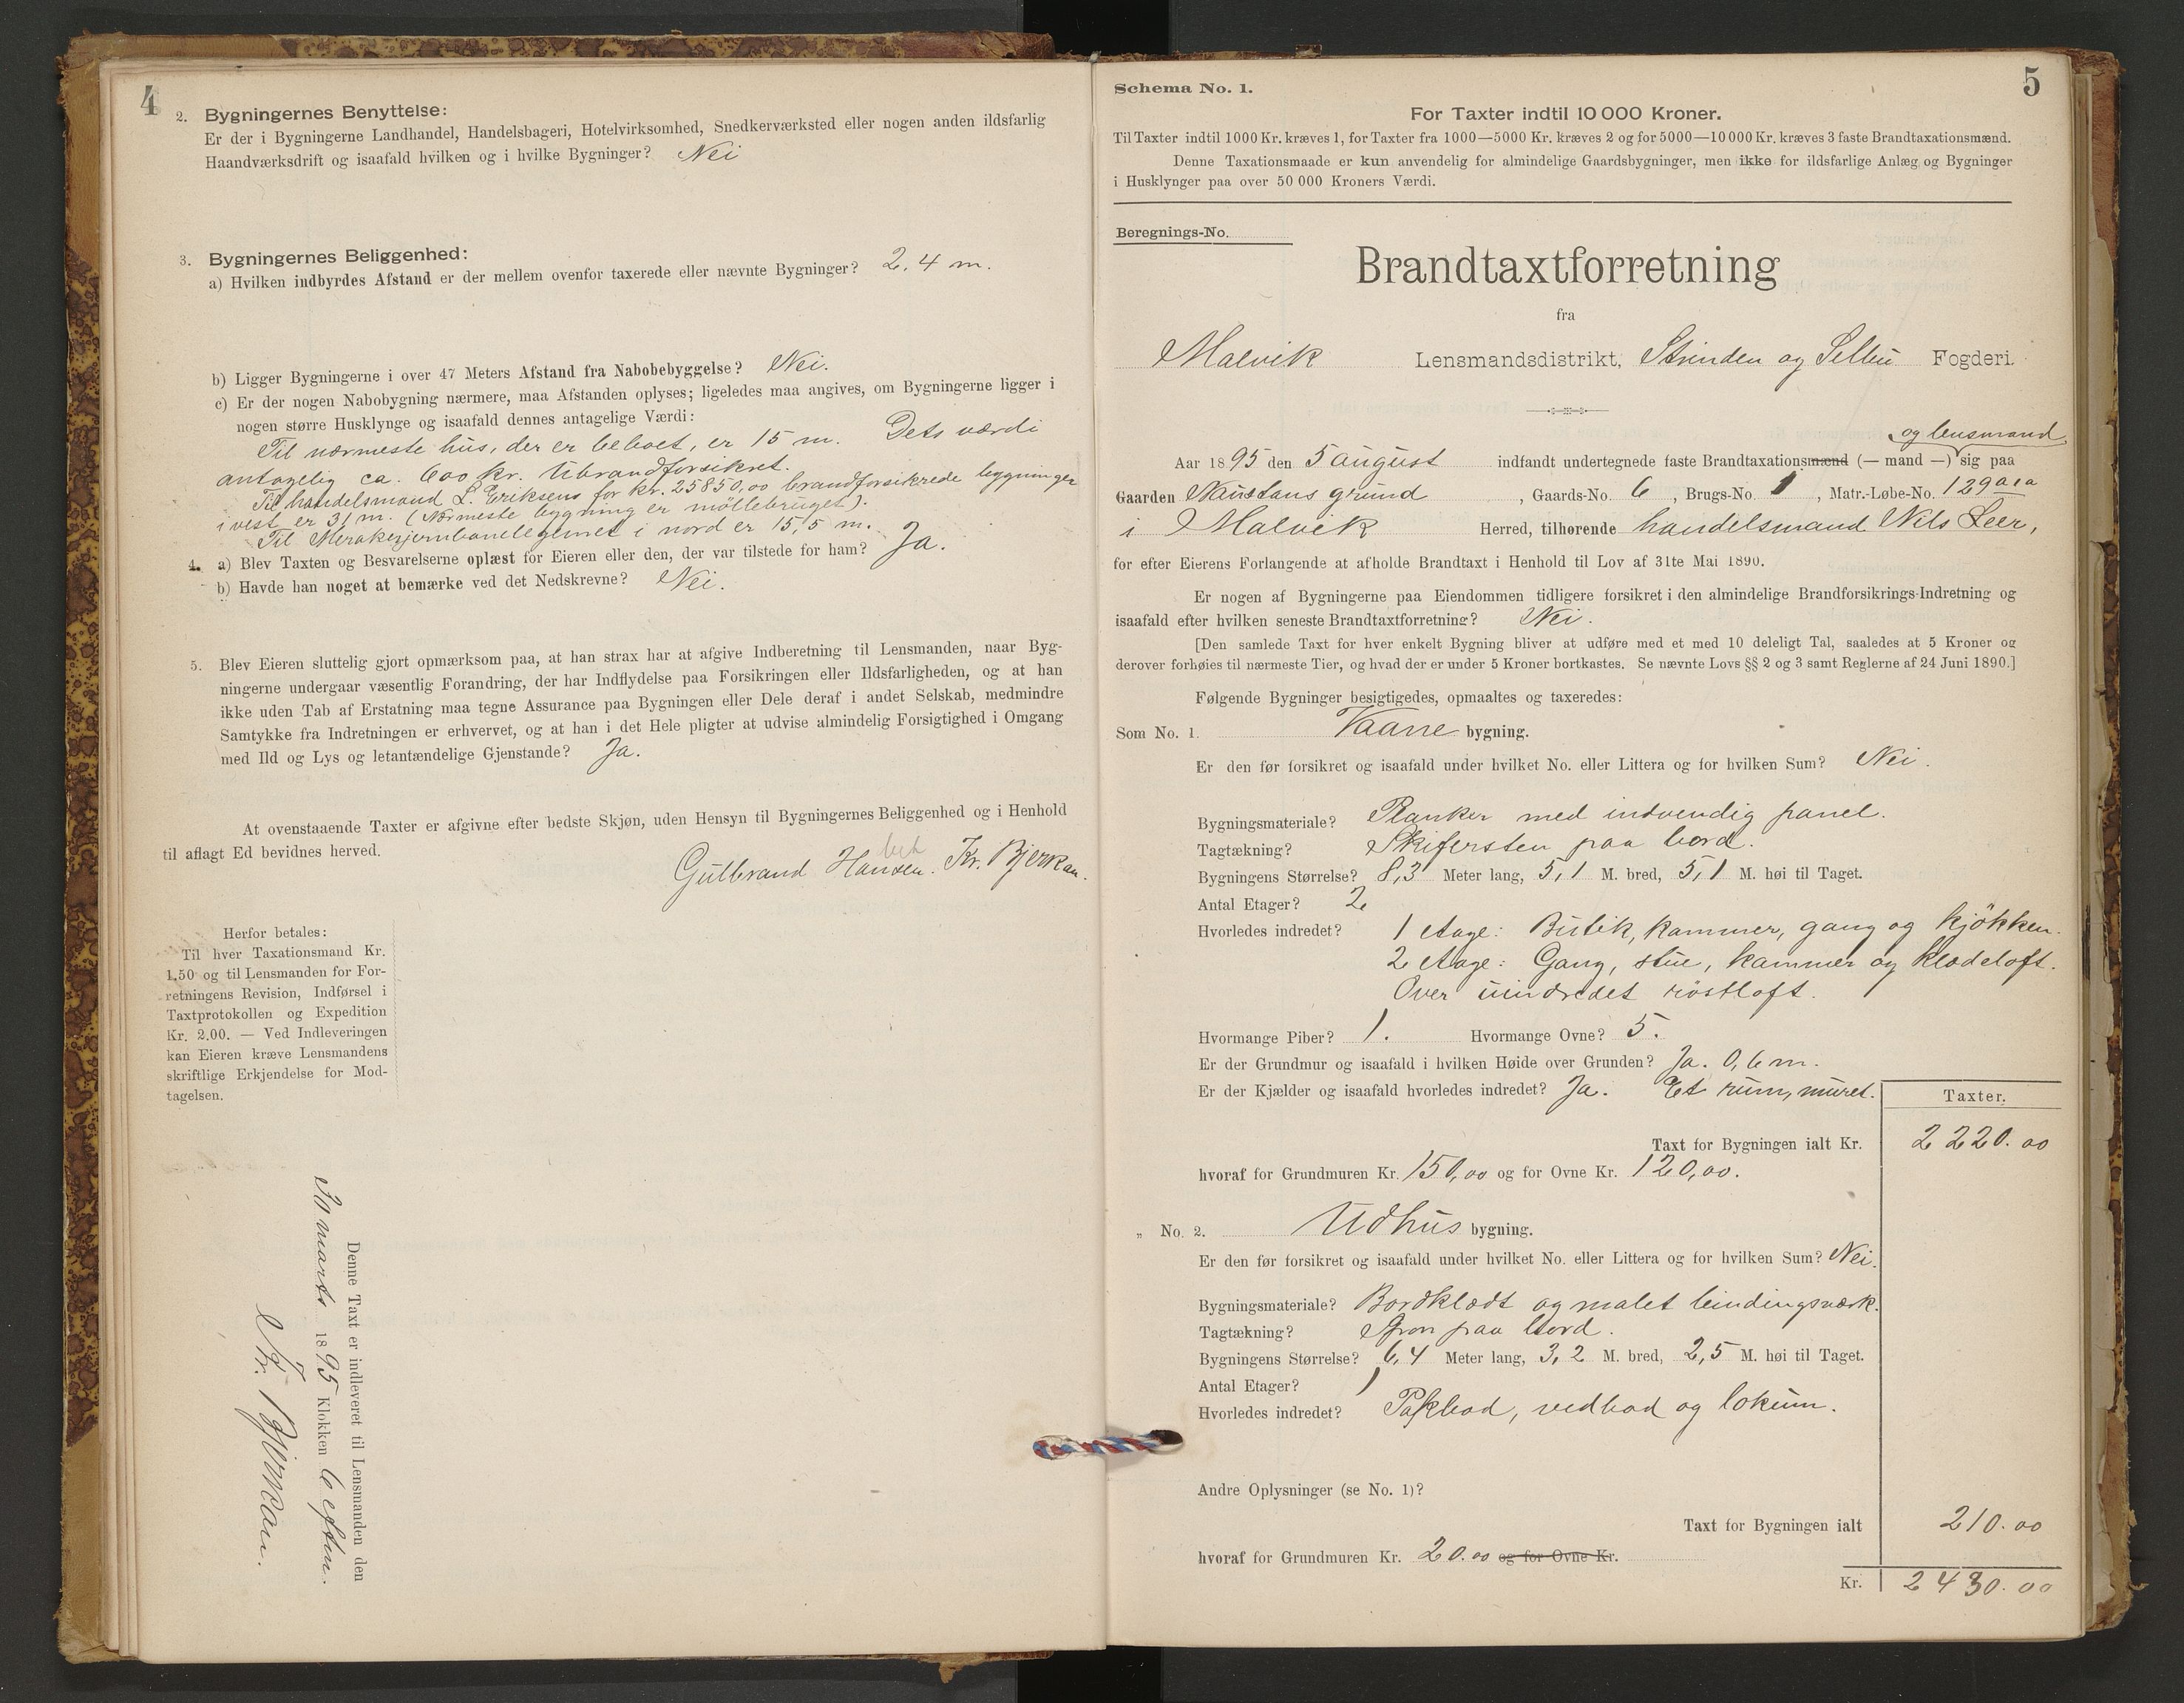 4
2. Bygningernes Benyttelse:
Er der i Bygningerne Landhandel, Handelsbageri, Hotelvirksomhed, Snedkerværksted eller nogen anden ildsfarlig
Haandværksdrift og isaafald hvilken og i hvilke Bygninger? Nei
3. Bygningernes Beliggenhed:
a) Hvilken indbyrdes Afstand er der mellem ovenfor taxerede eller nævnte Bygninger? 2,4 m.
b) Ligger Bygningerne i over 47 Meters Afstand fra Nabobebyggelse? Nei.
c) Er der nogen Nabobygning nærmere, maa Afstanden oplyses; ligeledes maa angives, om Bygningerne ligger i
nogen større Husklynge og isaafald dennes antagelige Værdi:
Til nærmeste hus, der er beboet, er 15 m. Dets værdi
antagelig ca. 600 kr. Ubrandforsikret.
Til handelsmand L. Eriksens for kr. 25850,00 brandforsikrede bygninger
i vest er 31 m. (Nærmeste bygning er möllebruget).
Til Merakerjernbanelegemet i nord er 15,5 m.
4. a) Blev Taxten og Besvarelserne oplæst for Eieren eller den, der var tilstede for ham? Ja.
b) Havde han noget at bemærke ved det Nedskrevne? Nei.
5. Blev Eieren sluttelig gjort opmærksom paa, at han strax har at afgive Indberetning til Lensmanden, naar Byg-
ningerne undergaar væsentlig Forandring, der har Indflydelse paa Forsikringen eller Ildsfarligheden, og at han
ikke uden Tab af Erstatning maa tegne Assurance paa Bygningen eller Dele deraf i andet Selskab, medmindre
Samtykke fra Indretningen er erhvervet, og at han i det Hele pligter at udvise almindelig Forsigtighed i Omgang
med Ild og Lys og letantændelige Gjenstande? Ja.
At ovenstaaende Taxter er afgivne efter bedste Skjøn, uden Hensyn til Bygningernes Beliggenhed og i Henhold
til aflagt Ed bevidnes herved.
Gulbrand Hansen. Kr. Bjerkan.
Herfor betales:
Til hver Taxationsmand Kr.
1.50 og til Lensmanden for For-
retningens Revision, Indførsel i
Taxtprotokollen og Expedition
Kr. 2.00. — Ved Indleveringen
kan Eieren kræve Lensmandens
skriftlige Erkjendelse for Mod-
tagelsen.
Denne Taxt er indleveret til Lensmanden den
marts 1895 Klokken 6 eftm.
Kr. Bjerkan.
Schema No. 1.
5
For Taxter indtil 10 000 Kroner.
Til Taxter indtil 1000 Kr. kræves 1, for Taxter fra 1000—5000 Kr. kræves 2 og for 5000—10 000 Kr. kræves 3 faste Brandtaxationsmænd.
Denne Taxationsmaade er kun anvendelig for almindelige Gaardsbygninger, men ikke for ildsfarlige Anlæg og Bygninger
i Husklynger paa over 50 000 Kroners Værdi.
Beregnings-No.
Brandtaxtforretning
fra
Malvik Lensmandsdistrikt, Strinden og Selbu Fogderi.
og lensmand
Aar 1895 den 5 august indfandt undertegnede faste Brandtaxationsmænd (— mand —) sig paa
Gaarden Naustans grund, Gaards-No. 6, Brugs-No. 1, Matr.-Løbe-No. 129a1a
i Malvik Herred, tilhørende handelsmand Nils Leer,
for efter Eierens Forlangende at afholde Brandtaxt i Henhold til Lov af 31te Mai 1890.
Er nogen af Bygningerne paa Eiendommen tidligere forsikret i den almindelige Brandforsikrings-Indretning og
isaafald efter hvilken seneste Brandtaxtforretning? Nei.
[Den samlede Taxt for hver enkelt Bygning bliver at udføre med et med 10 deleligt Tal, saaledes at 5 Kroner og
derover forhøies til nærmeste Tier, og hvad der er under 5 Kroner bortkastes. Se nævnte Lovs §§ 2 og 3 samt Reglerne af 24 Juni 1890.]
Følgende Bygninger besigtigedes, opmaaltes og taxeredes:
Som No. 1. Vaane bygning.
Er den før forsikret og isaafald under hvilket No. eller Littera og for hvilken Sum? Nei.
Bygningsmateriale? Planker med indvendig panel.
Tagtækning? Skifersten paa bord.
Bygningens Størrelse? 8,3 Meter lang, 5,1 M. bred, 5,1 M. høi til Taget.
Antal Etager? 2
Hvorledes indredet? 1 Etage: Butik, kammer, gang og kjökken.
2 Etage: Gang, stue, kammer og klædeloft.
Over uindredet röstloft.
Hvormange Piber? 1. Hvormange Ovne? 5.
Er der Grundmur og isaafald i hvilken Høide over Grunden? Ja. 0,6 m.
Er der Kjælder og isaafald hvorledes indredet? Ja. Et rum, muret.
Taxter.
Taxt for Bygningen ialt Kr. 2220.00
hvoraf for Grundmuren Kr. 150,00 og for Ovne Kr. 120,00.
„ No. 2. Udhus bygning.
Er den før forsikret og isaafald under hvilket No. eller Littera og for hvilken Sum? Nei.
Bygningsmateriale? Bordklædt og malet bindingsværk.
Tagtækning? Spon paa bord.
Bygningens Størrelse? 6,4 Meter lang, 3,2 M. bred, 2,5 M. høi til Taget.
Antal Etager? 1
Hvorledes indredet? Pakbod, vedbod og lokum.
Andre Oplysninger (se No. 1)?
Taxt for Bygningen ialt 210.00
hvoraf for Grundmuren Kr. 20.00 og for Ovne Kr.
Kr. 2430.00